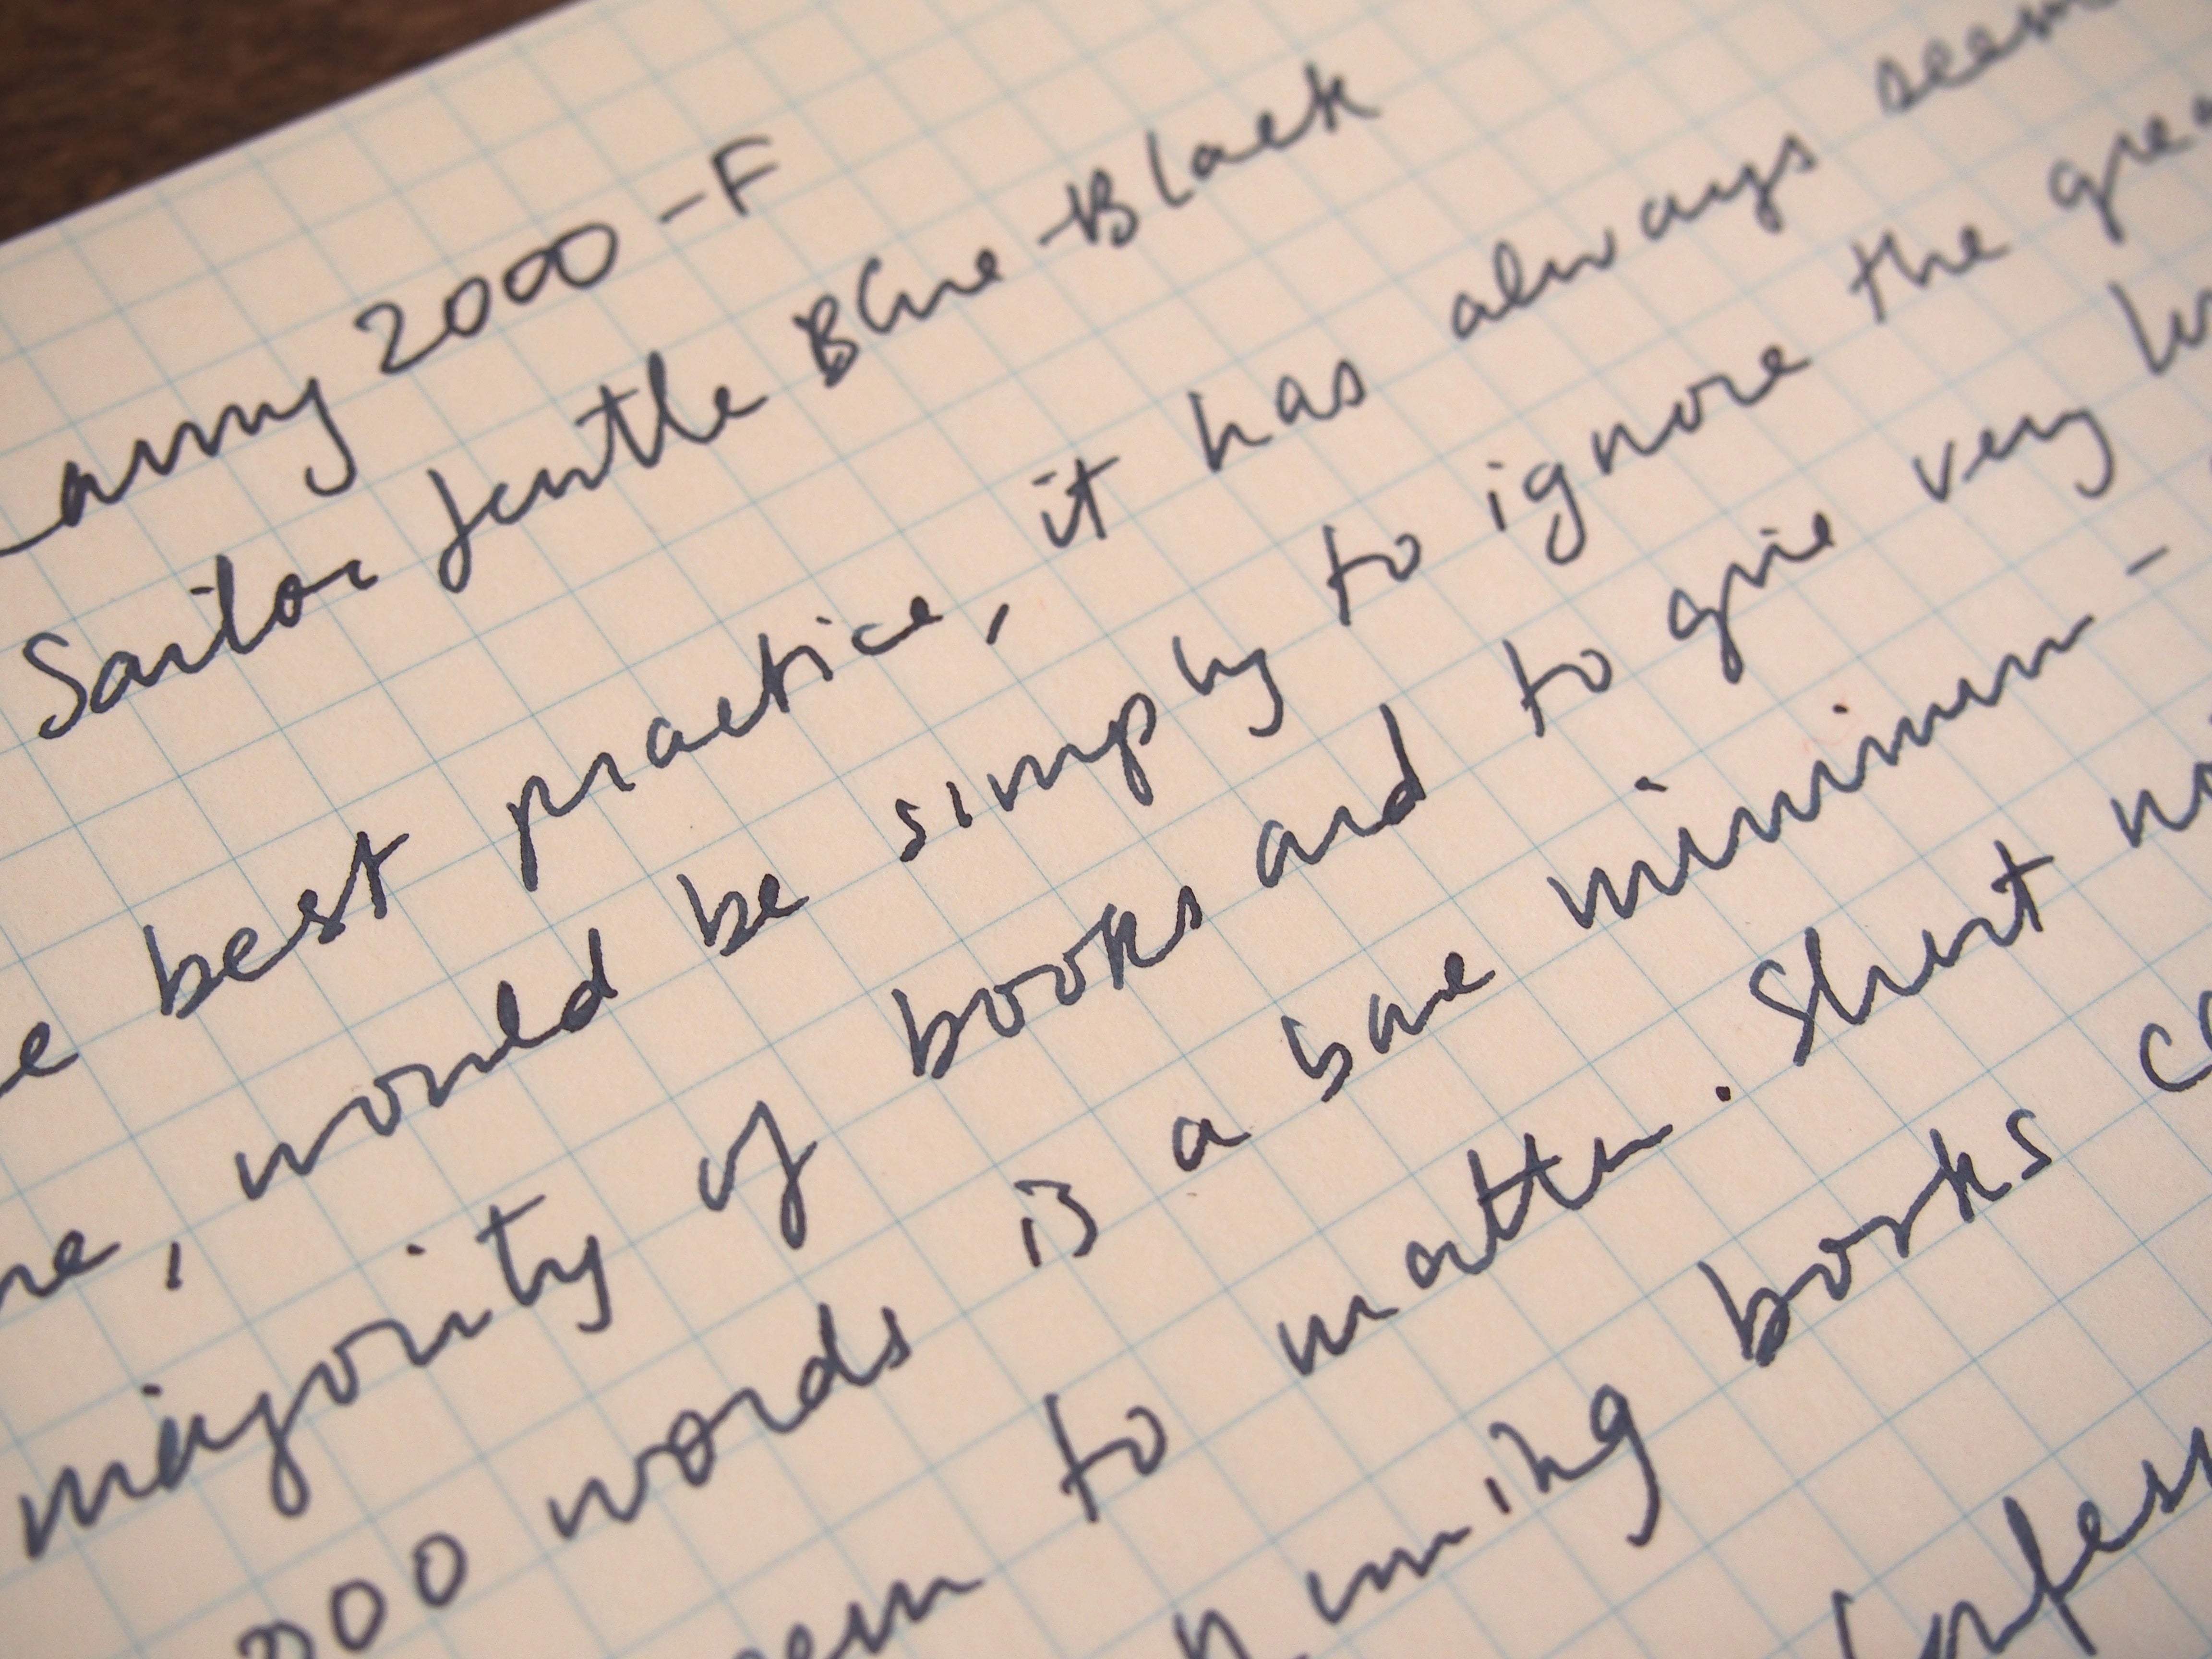 Lamy 2000 - F
Sailor Jentle Blue-Black
best practice, it has always seem
, would be simply to ignore the grea
majority of books and to give very
000 words is a bare minimum -
to matter. Short no
books